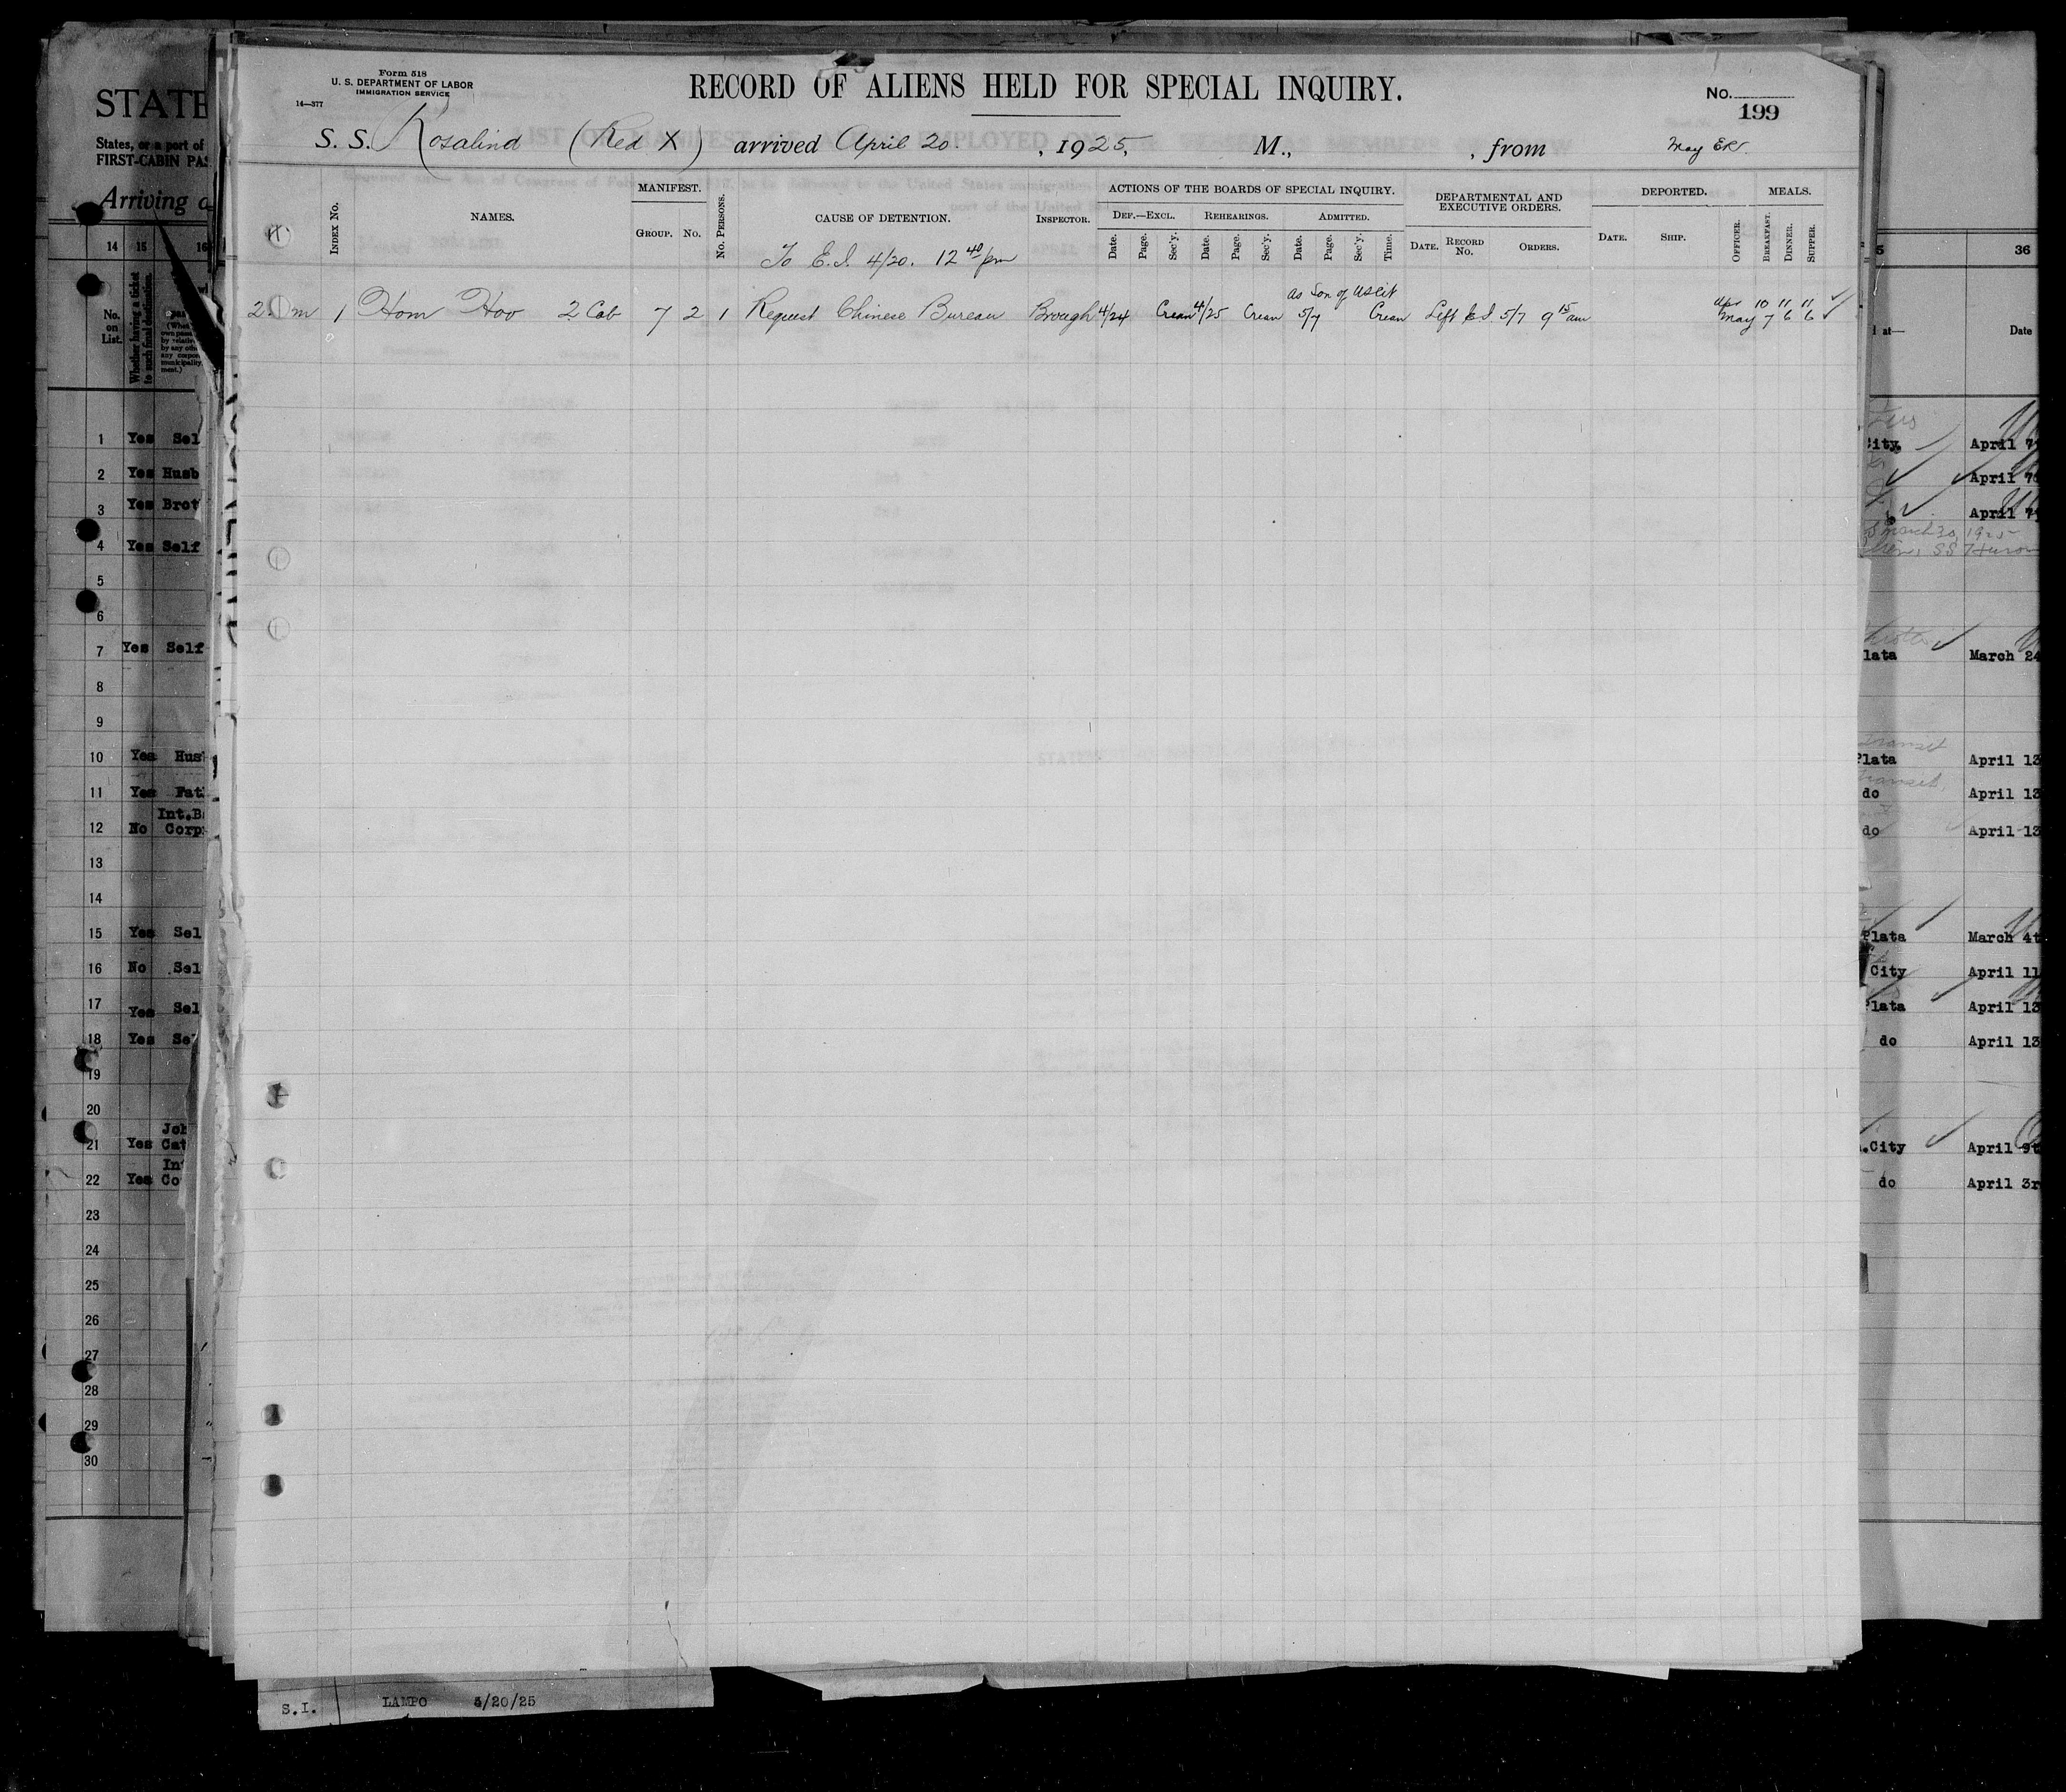 Form 518
U. S. DEPARTMENT OF LABOR
IMMIGRATION SERVICE
14—377
RECORD OF ALIENS HELD FOR SPECIAL INQUIRY.
No.
199
S. S. Rosalind (Red X) arrived April 20. , 1925, M., , from
INDEX No.
NAMES.
MANIFEST.
GROUP. No.
No. PERSONS.
CAUSE OF DETENTION.
INSPECTOR.
ACTIONS OF THE BOARDS OF SPECIAL INQUIRY.
DEF.—EXCL. REHEARINGS. ADMITTED.
Date. Page. Sec'y. Date. Page. Sec'y. Date. Page. Sec'y. Time.
DEPARTMENTAL AND
EXECUTIVE ORDERS.
DATE. RECORD No. ORDERS.
DEPORTED.
DATE. SHIP. OFFICER.
MEALS.
BREAKFAST. DINNER. SUPPER.
To E.I. 4/20. 12 40 pm
as Son of US Cit
1 Hom Hoo 2 Cab 7 2 1 Request Chinese Bureau Brough 4/24 Crean 4/25 Crean 5/7 Crean Left E I 5/7 9 15 am
Apr 10 11 11
May 7 6 6
STATE
States, or a port of
FIRST-CABIN PAS
Arriving a
14 15 16
No.
on
List.
Whether having a ticket
to such final destination.
1 Yes Sel
2 Yes Husb
3 Yes Brot
4 Yes Self
5
6
7 Yes Self
8
9
10 Yes Hus
11 Yes Fat
Int.B
12 No Corp
13
14
15 Yes Sel
16 No Sel
17 Yes Sel
18 Yes Se
19
20
Joh
21 Yes Cat
Int
22 Yes Co
23
24
25
26
27
28
29
30
5 36
at— Date
City, April 7
April 7
April 7
March 30, 1925
SS Huron
lata March 24
Transit
Plata April 13
Transit
do April 13
do April 13
Plata March 4t
City April 11
Plata April 13
do April 13
.City April 9t
do April 3r
S.I. LAMPO 4/20/25